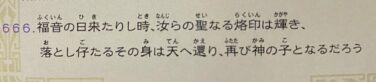 666. 福音の日来たりし時、汝らの聖なる烙印は輝き、
落とし仔たるその身は天へ還り、再び神の子となるだろう